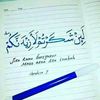 لَئِنْ شَكَرْتُمْ لَأَزِيدَنَّكُمْ
Jika kamu bersyukur
Maka akan Aku tambah